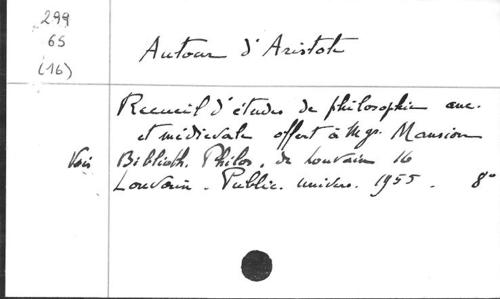 299
65
(16)
Autour d'Aristote
Recueil d'études de philosophie anc.
et médiévale offert à Mgr. Mansion
Voir Biblioth. Philos. de Louvain 16
Louvain. Public. univers. 1955. 8°